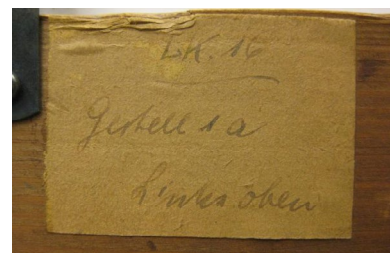 LK. 16
Gestell 1a
Links oben